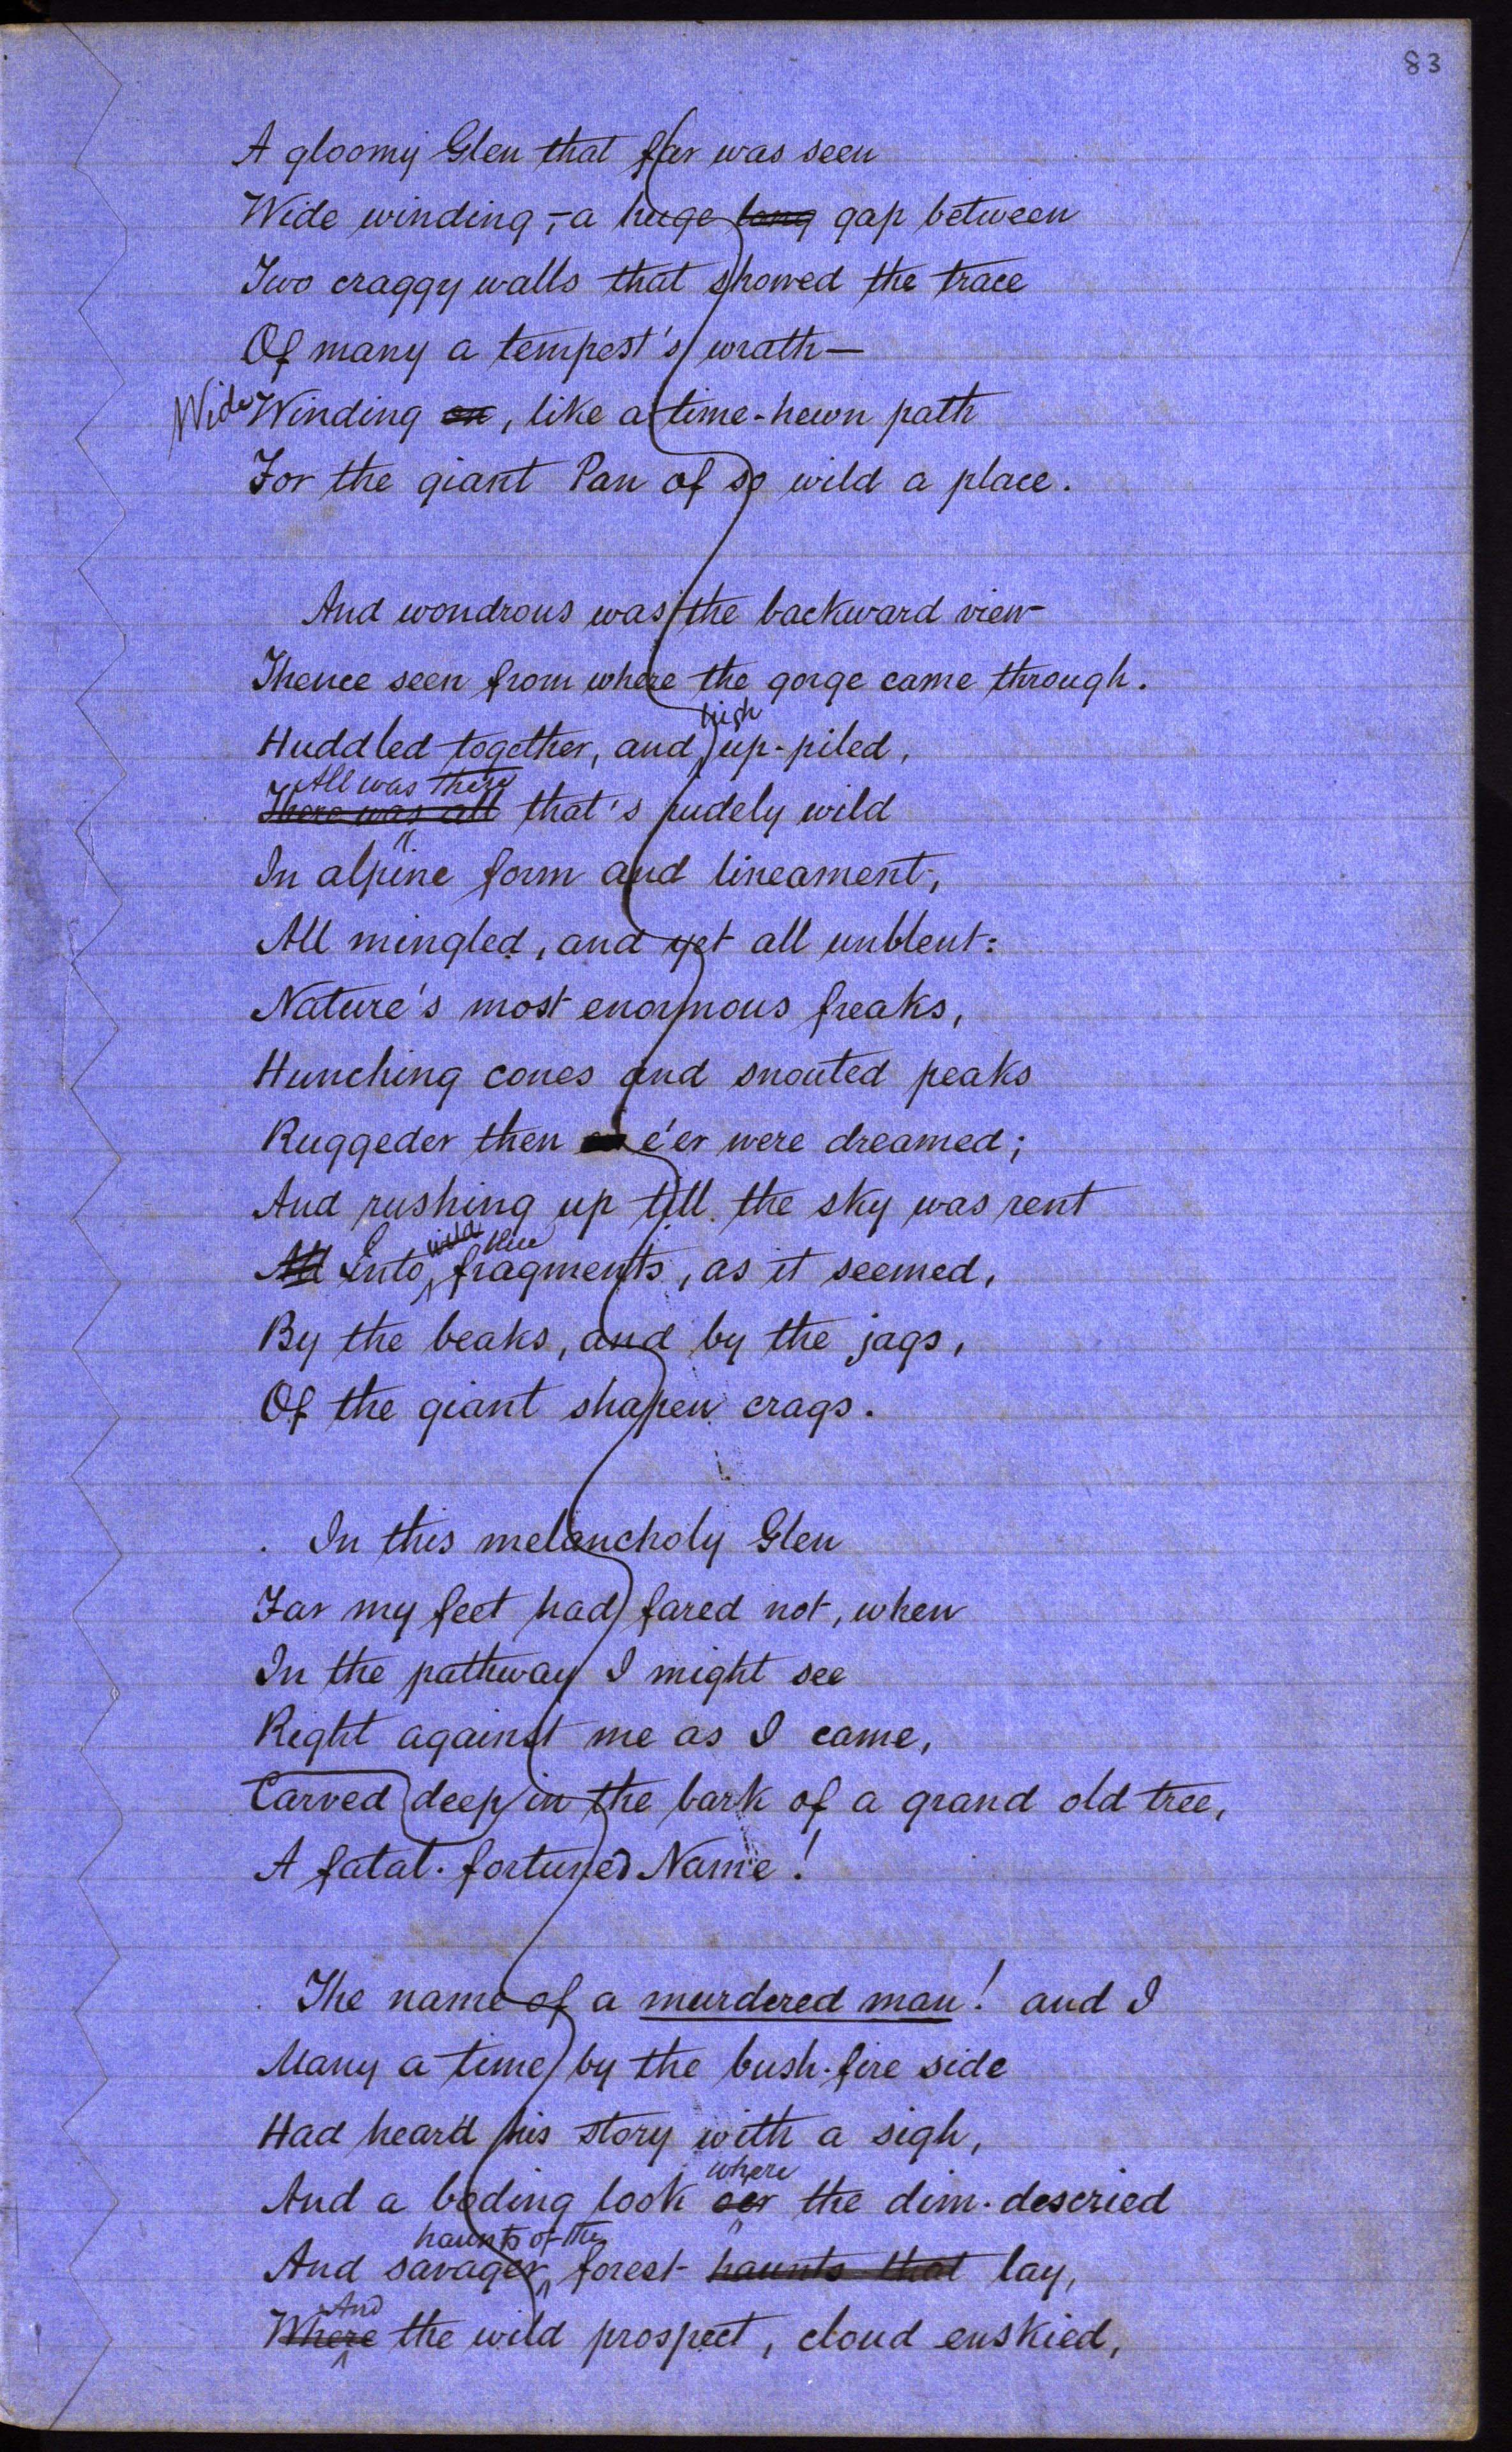 83
A gloomy Glen that far was seen
Wide winding,—a huge long gap between
Two craggy walls that showed the trace
Of many a tempest's wrath—
Wide Winding on, like a time-hewn path
For the giant Pan of so wild a place.
And wondrous was the backward view
Thence seen from where the gorge came through.
high
Huddled together, and up-piled,
All was there
There was all that's rudely wild
In alpine form and lineament,
All mingled, and yet all unblent:
Nature's most enormous freaks,
Hunching cones and snouted peaks
Ruggeder then e'er were dreamed;
And rushing up till the sky was rent
wild blue
All Into fragments, as it seemed,
By the beaks, and by the jags,
Of the giant shapen crags.
In this melancholy Glen
Far my feet had fared not, when
In the pathway I might see
Right against me as I came,
Carved deep in the bark of a grand old tree,
A fatal-fortuned Name!
The name of a murdered man! and I
Many a time by the bush-fire side
Had heard his story with a sigh,
where
And a boding look oer the dim-descried
haunts of the
And savager forest haunts that lay,
And
Where the wild prospect, cloud enskied,